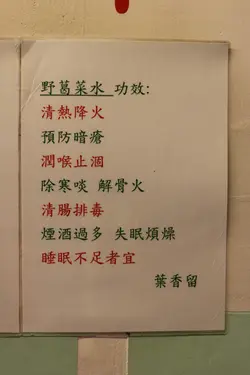 野葛菜水 功效:
清熱降火
預防暗瘡
潤喉止涸
除寒咳 解骨火
清腸排毒
煙酒過多 失眠煩燥
睡眠不足者宜
葉香留